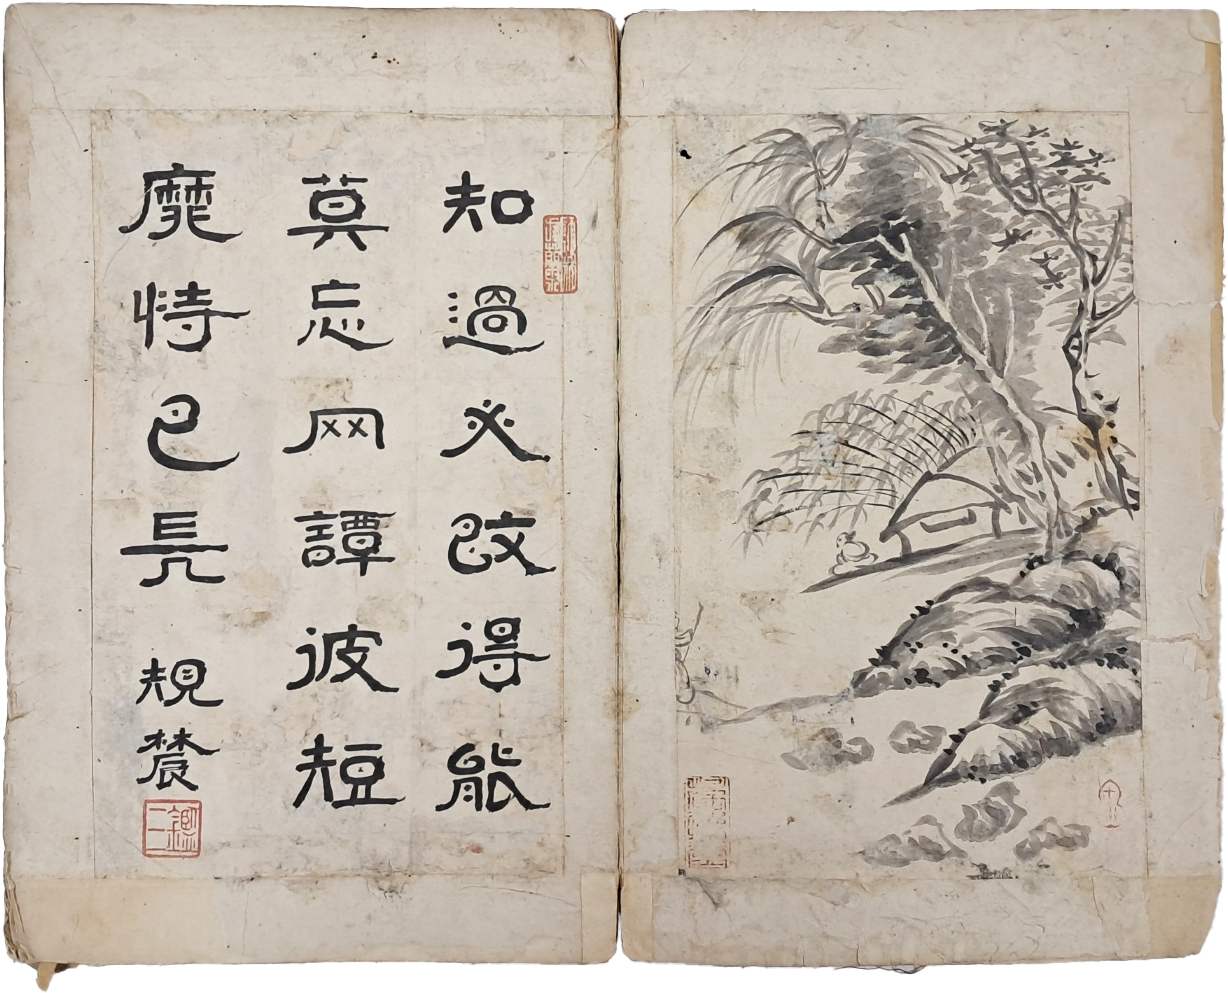 知過必改得能
莫忘网譚彼短
靡恃己長
規辳